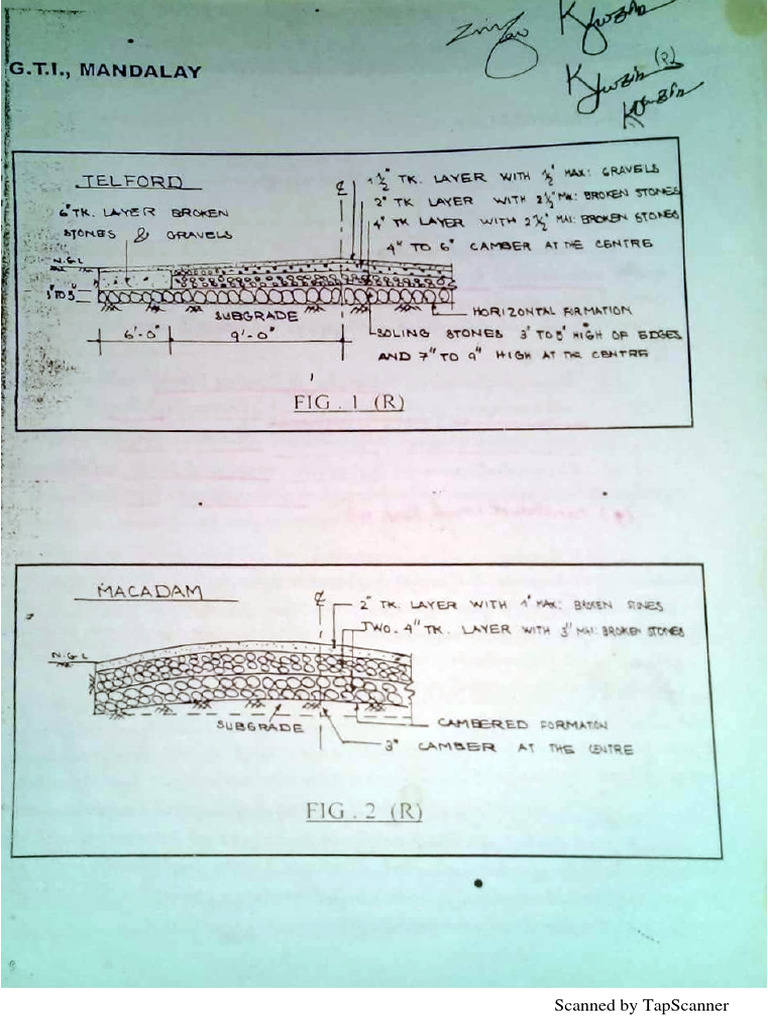 G.T.I., MANDALAY
TELFORD
6" TK. LAYER BROKEN
STONES & GRAVELS
N.G.L
3" TO 5"
SUBGRADE
6'-0" 9'-0"
℄
1½" TK. LAYER WITH ½" MAX: GRAVELS
2" TK LAYER WITH 2½" MAX: BROKEN STONES
4" TK LAYER WITH 2½" MAX: BROKEN STONES
4" TO 6" CAMBER AT THE CENTRE
HORIZONTAL FORMATION
SOLING STONES 3" TO 5" HIGH OF EDGES
AND 7" TO 9" HIGH AT THE CENTRE
FIG. 1 (R)
MACADAM
℄
2" TK. LAYER WITH 1" MAX: BROKEN STONES
TWO- 4" TK. LAYER WITH 3" MAX: BROKEN STONES
N.G.L
SUBGRADE
CAMBERED FORMATION
3" CAMBER AT THE CENTRE
FIG. 2 (R)
Scanned by TapScanner